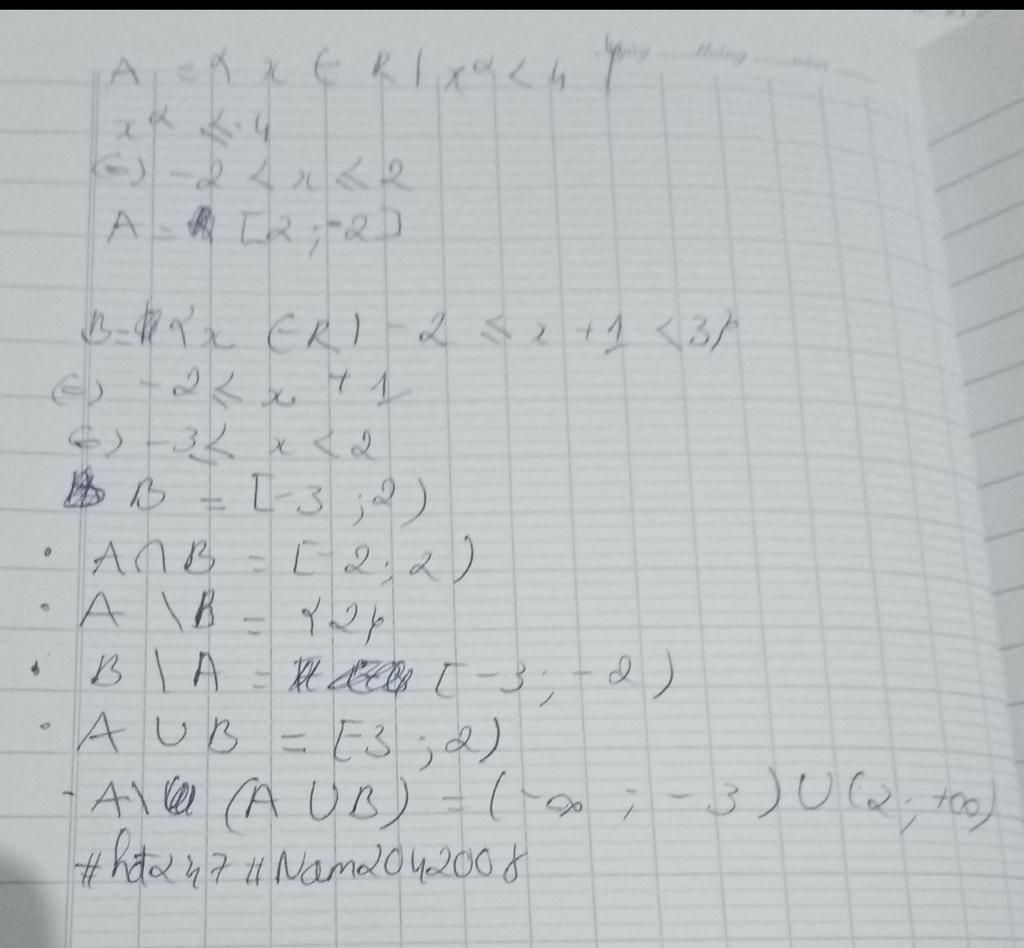 Ngày Tháng năm
A = { x ∈ R | x² < 4 }
x² ≤ 4
(=) -2 < x ≤ 2
A = [2 ; -2]
B = { x ∈ R | -2 ≤ x + 1 < 3 }
(=) -2 ≤ x + 1
(=) -3 ≤ x < 2
B = [-3 ; 2)
• A ∩ B = [-2 ; 2)
• A \ B = {2}
• B \ A = [-3 ; -2)
• A ∪ B = [-3 ; 2)
- A \ (A ∪ B) = (-∞ ; -3) ∪ (2 ; +∞)
#hđ247 #Nam2042008